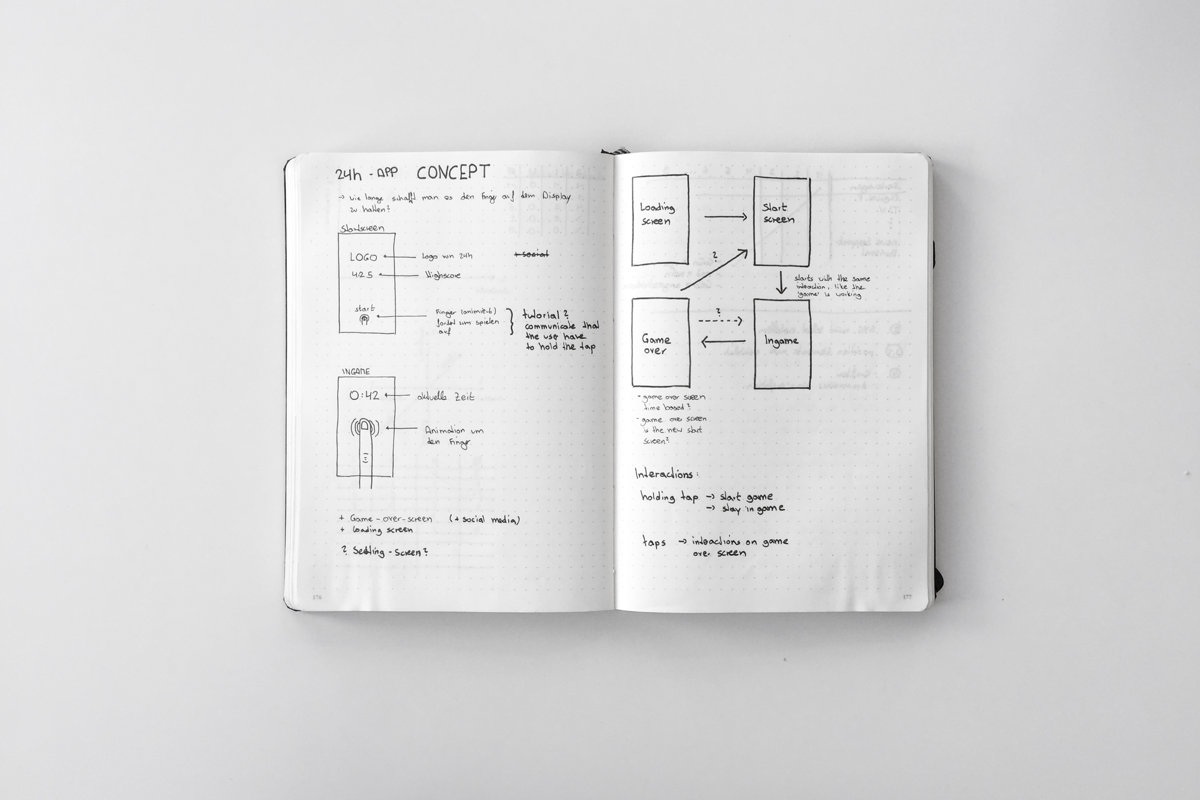 24h - APP CONCEPT
→ Wie lange schafft man es den Finger auf dem Display
zu halten?
Startscreen
LOGO ← Logo von 24h
+ social
4:25 ← Highscore
start
Finger (animiert)
fordert zum spielen
auf
tutorial?
communicate that
the use have
to hold the tap
INGAME
0:42 ← aktuelle Zeit
Animation um
den Finger
+ Game-over-screen (+ social media)
+ Loading screen
? Setting-Screen?
276
Loading
screen
Start
screen
?
starts with the same
interaction, like the
"game" is working
Game
over
?
Ingame
- game over screen
time based?
- game over screen
is the new start
screen?
Interactions:
holding tap → start game
→ stay in game
taps → interactions on game
over screen
277